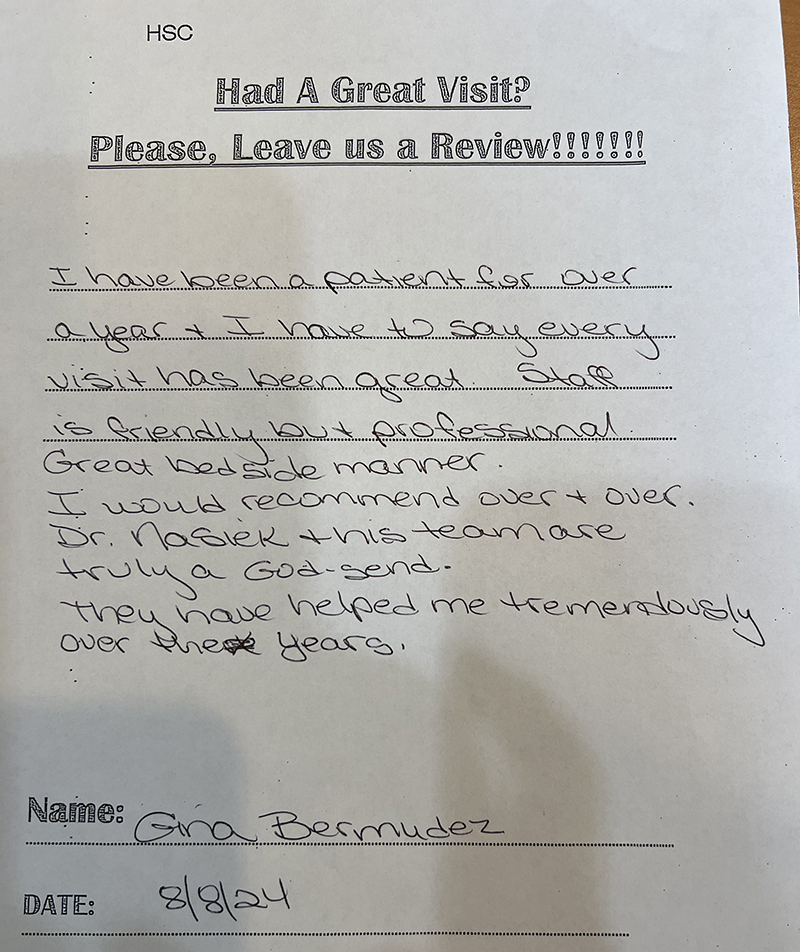 HSC
Had A Great Visit?
Please, Leave us a Review!!!!!!!
I have been a patient for over
a year + I have to say every
visit has been great. Staff
is friendly but professional.
Great bedside manner.
I would recommend over + over.
Dr. Nasiek + his team are
truly a God-send.
They have helped me tremendously
over the years.
Name: Gina Bermudez
DATE: 8/8/24